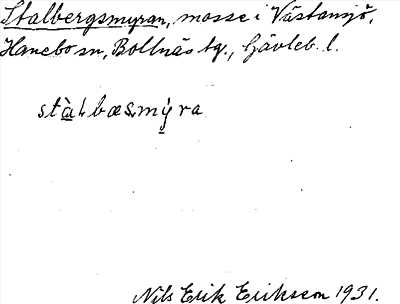 Stalbergsmyran, mosse i Västansjö,
Hanebo sn, Bollnäs tg., Gävleb. l.
stàlbæsmýra
Nils Erik Eriksson 1931.